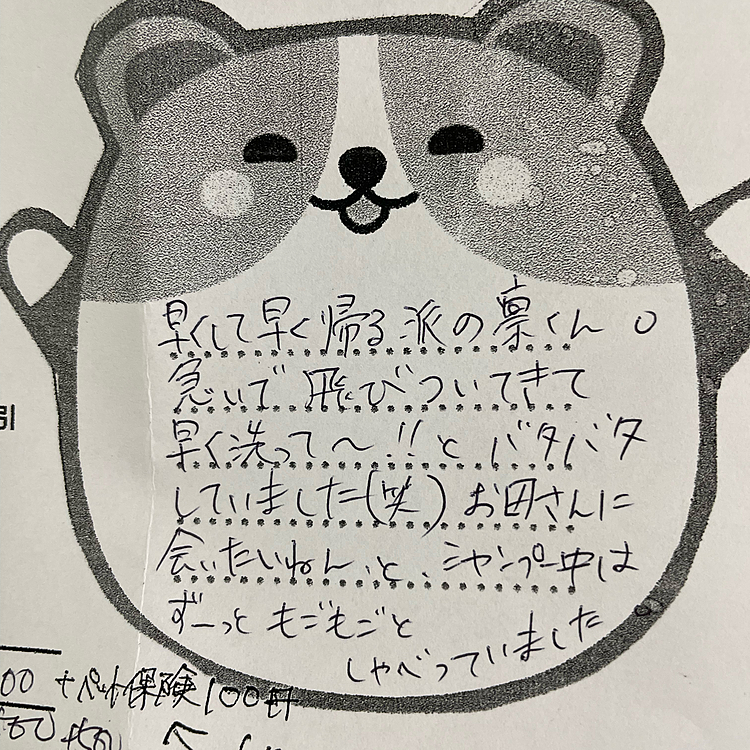 早くして早く帰る派の凛くん。
急いで飛びついてきて
早く洗って〜!!とバタバタ
していました(笑)お母さんに
会いたいねん、と、シャンプー中は
ずーっともごもごと
しゃべっていました
引
00 +ペット保険100円